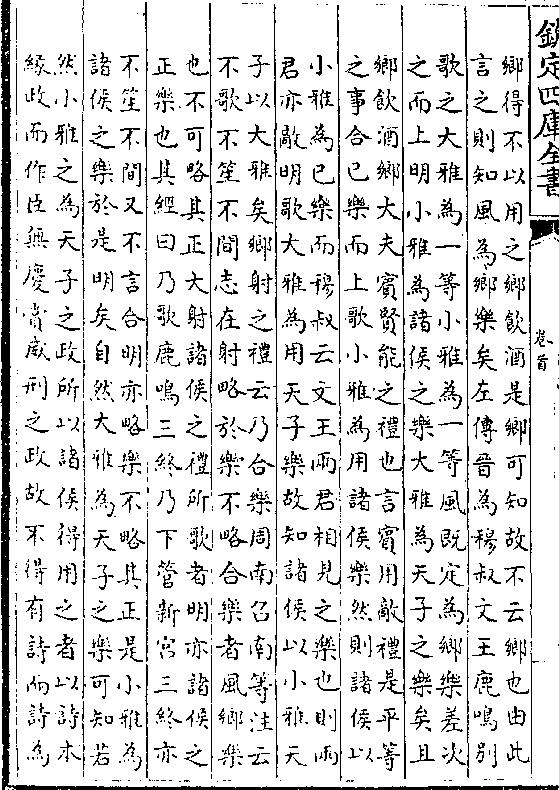 欽定四庫全書
卷首
鄉得不以用之鄉飲酒是鄉可知故不云鄉也由此
言之則知風為鄉樂矣左傳晉為穆叔文王鹿鳴别
歌之大雅為一等小雅為一等風既定為鄉樂差次
之而上明小雅為諸侯之樂大雅為天子之樂矣且
鄉飲酒鄉大夫賓賢能之禮也言賓用敵禮是平等
之事合己樂而上歌小雅為用諸侯樂然則諸侯以
小雅為已樂而穆叔云文王兩君相見之樂也則兩
君亦敵明歌大雅為用天子樂故知諸侯以小雅天
子以大雅矣鄉射之禮云乃合樂周南召南等注云
不歌不笙不間志在射略於樂不略合樂者風鄉樂
也不可略其正大射諸侯之禮所歌者明亦諸侯之
正樂也其經曰乃歌鹿鳴三終乃下管新宫三終亦
不笙不間又不言合明亦略樂不略其正是小雅為
諸侯之樂於是明矣自然大雅為天子之樂可知若
然小雅之為天子之政所以諸侯得用之者以詩本
緣政而作臣無慶賞威刑之政故不得有詩而詩為